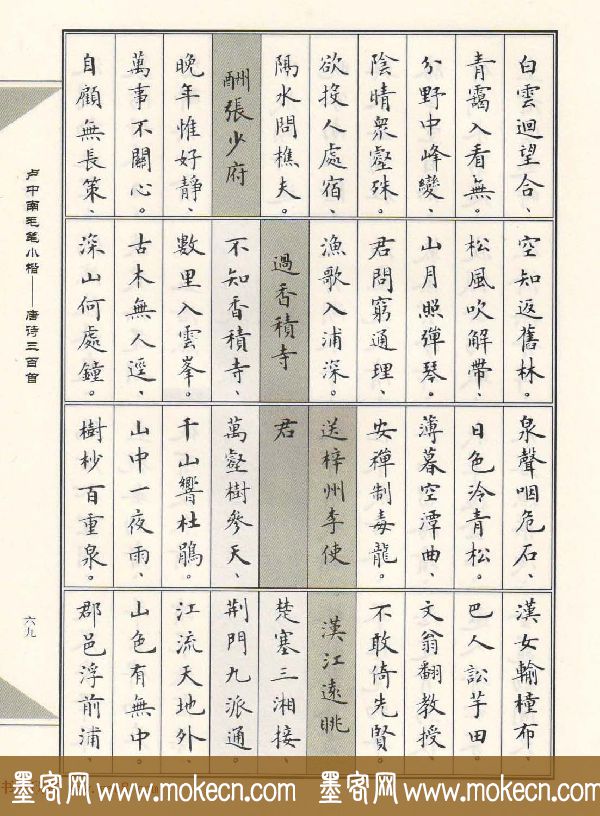 白雲迴望合、
青靄入看無。
分野中峰變、
陰晴眾壑殊。
欲投人處宿、
隔水問樵夫。
酬張少府
晚年惟好靜、
萬事不關心。
自顧無長策、
空知返舊林。
松風吹解帶、
山月照彈琴。
君問窮通理、
漁歌入浦深。
過香積寺
不知香積寺、
數里入雲峯。
古木無人逕、
深山何處鐘。
泉聲咽危石、
日色冷青松。
薄暮空潭曲、
安禪制毒龍。
送梓州李使
君
萬壑樹參天、
千山響杜鵑。
山中一夜雨、
樹杪百重泉。
漢女輸橦布、
巴人訟芋田。
文翁翻教授、
不敢倚先賢。
漢江遠眺
楚塞三湘接、
荊門九派通。
江流天地外、
山色有無中。
郡邑浮前浦、
卢中南毛笔小楷——唐诗三百首
六九
墨客网 www.mokecn.com 墨客网 www.mokecn.com